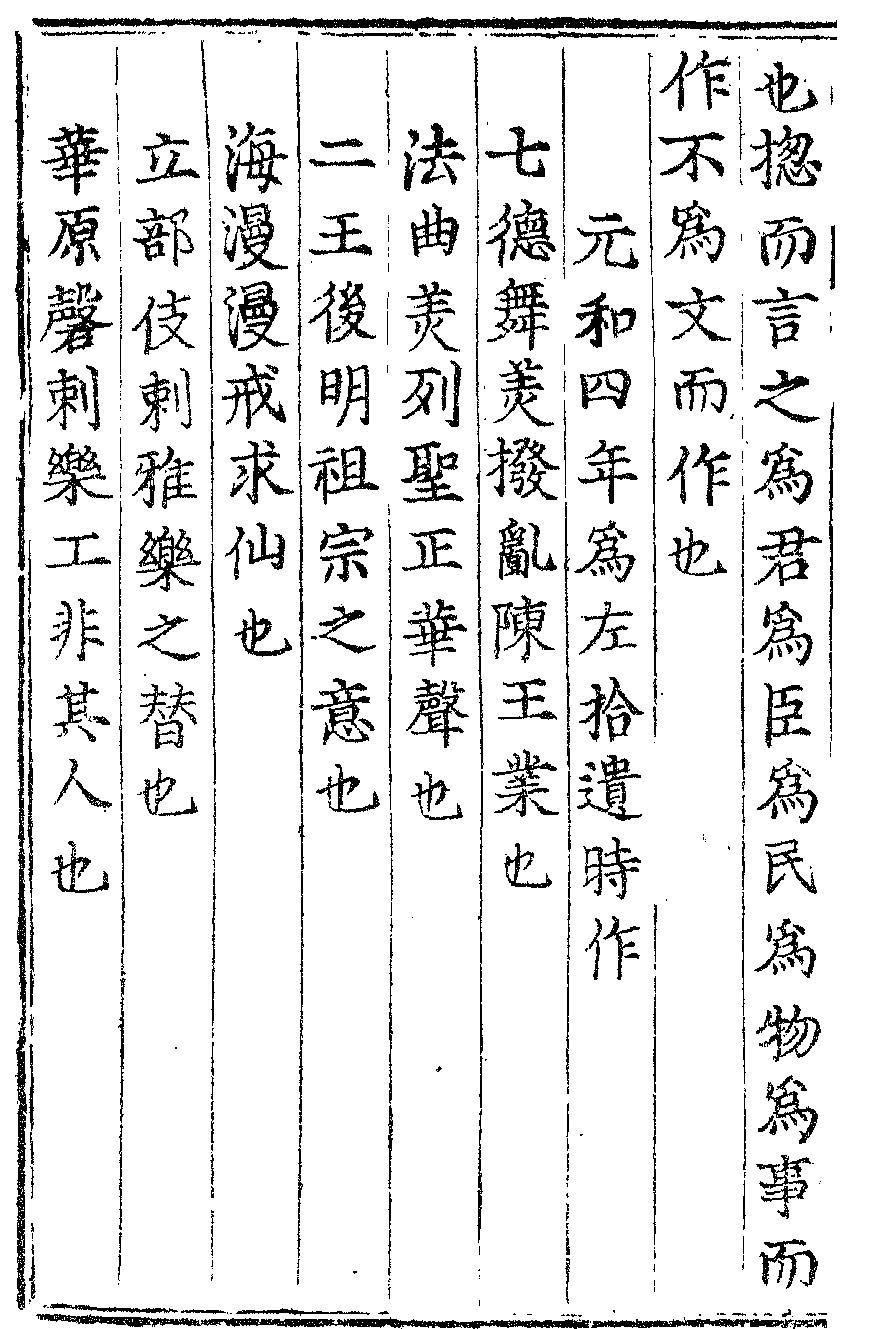 也揔而言之爲君爲臣爲民爲物爲事而
作不爲文而作也
元和四年爲左拾遺時作
七德舞美撥亂陳王業也
法曲美列聖正華聲也
二王後明祖宗之意也
海漫漫戒求仙也
立部伎刺雅樂之替也
華原磬刺樂工非其人也